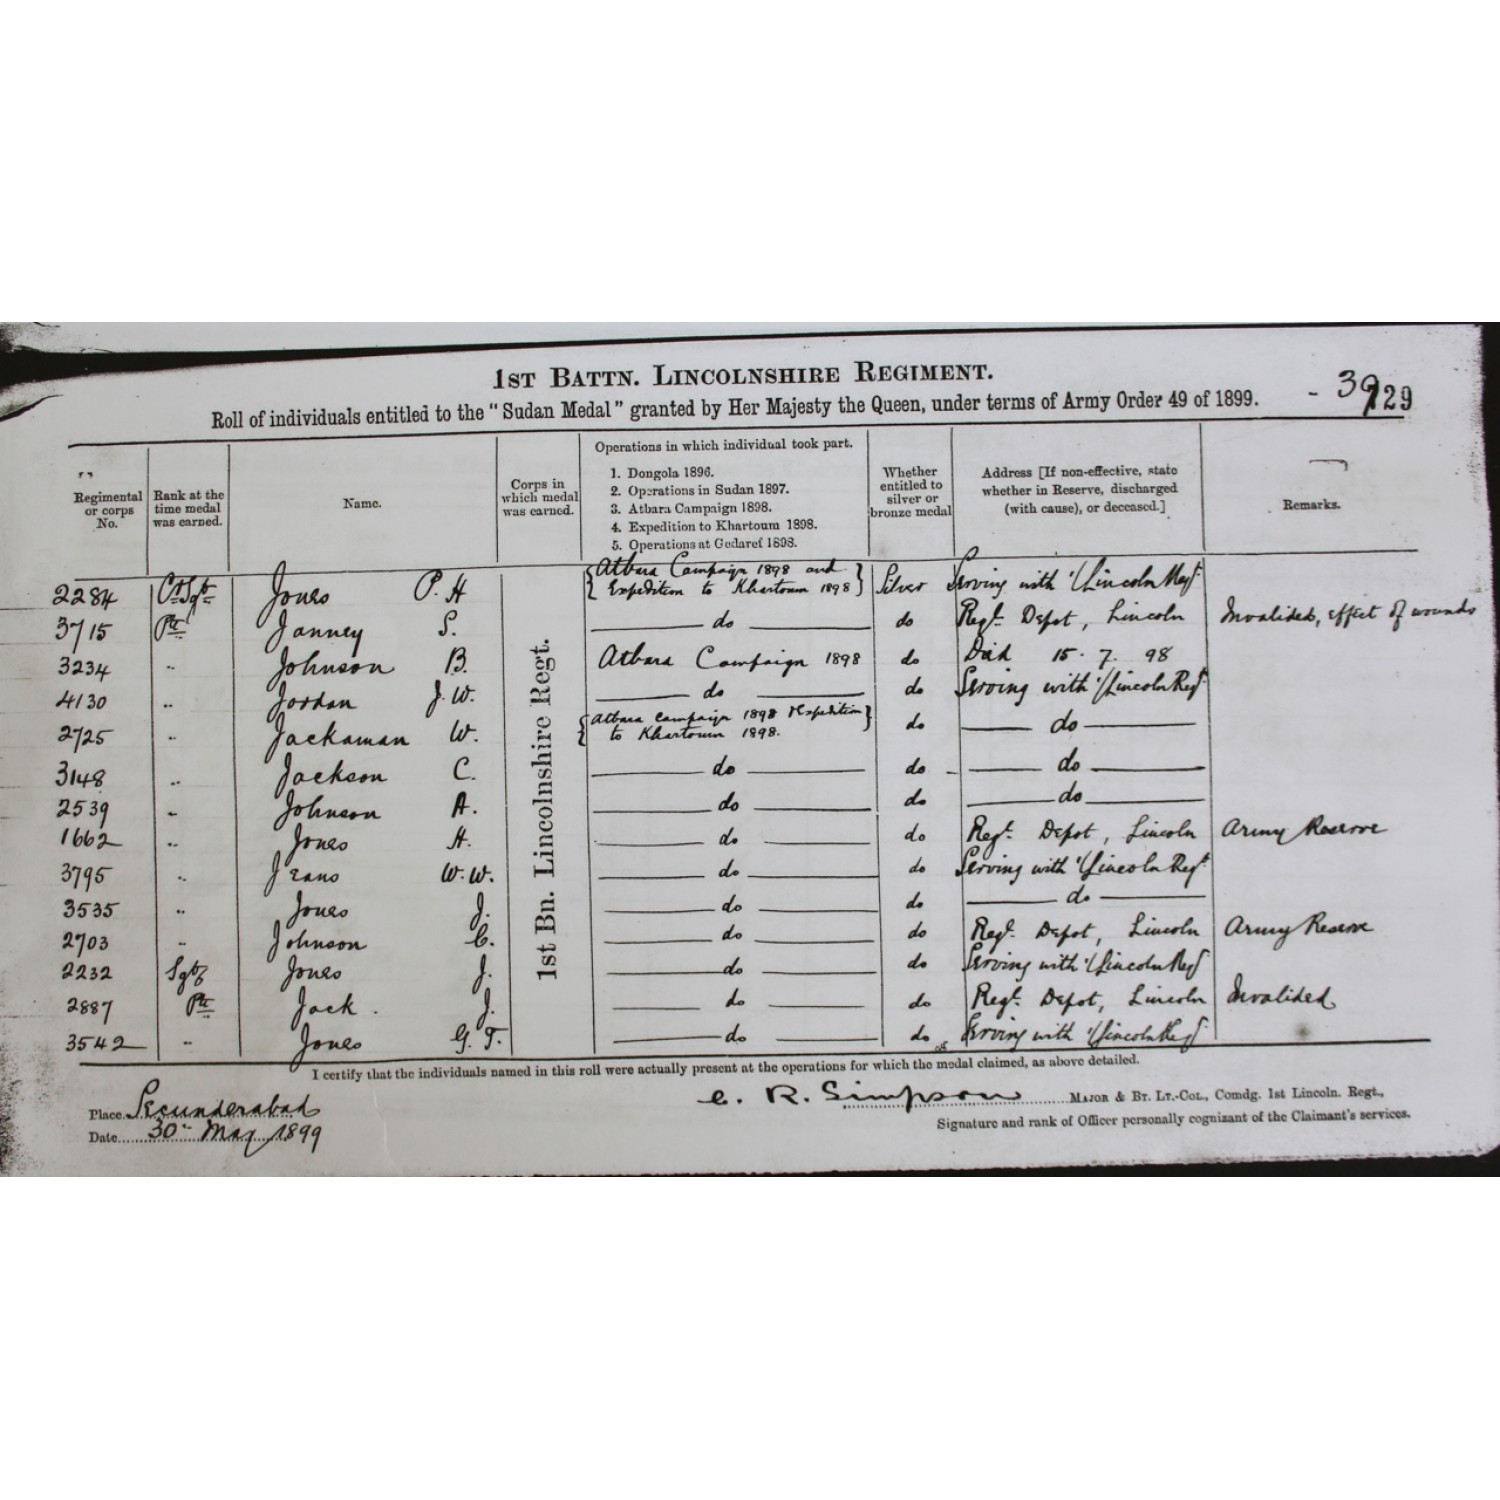 1ST BATTN. LINCOLNSHIRE REGIMENT.
Roll of individuals entitled to the "Sudan Medal" granted by Her Majesty the Queen, under terms of Army Order 49 of 1899. - 39 129
Regimental or corps No. Rank at the time medal was earned. Name. Corps in which medal was earned. Operations in which individual took part. 1. Dongola 1896. 2. Operations in Sudan 1897. 3. Atbara Campaign 1898. 4. Expedition to Khartoum 1898. 5. Operations at Gedaref 1898. Whether entitled to silver or bronze medal Address [If non-effective, state whether in Reserve, discharged (with cause), or deceased.] Remarks.
1st Bn. Lincolnshire Regt.
2284 Ct Sgt Jones P. H {Atbara Campaign 1898 and Expedition to Khartoum 1898} Silver Serving with 1/Lincoln Regt.
3715 Pte Janney S. do do Regt. Depot, Lincoln Invalided, effect of wounds
3234 " Johnson B. Atbara Campaign 1898 do Died 15. 7. 98
4130 " Jordan J. W. do do Serving with 1/Lincoln Regt.
2725 " Jackaman W. {Atbara Campaign 1898 & Expedition to Khartoum 1898.} do do
3148 " Jackson C. do do do
2539 " Johnson A. do do do
1662 " Jones H. do do Regt. Depot, Lincoln Army Reserve
3795 " W. W. do do Serving with 1/Lincoln Regt.
3535 " Jones J. do do do
2703 " Johnson C. do do Regt. Depot, Lincoln Army Reserve
2232 Sgt Jones J. do do Serving with 1/Lincoln Regt
2887 Pte Jack. J. do do Regt. Depot, Lincoln Invalided
3542 " Jones G. T. do do Serving with 1/Lincoln Regt
I certify that the individuals named in this roll were actually present at the operations for which the medal claimed, as above detailed.
Place. Secunderabad
Date 30th May 1899
C. R. Simpson MAJOR & BT. LT.-COL., Comdg. 1st Lincoln. Regt.,
Signature and rank of Officer personally cognizant of the Claimant's services.